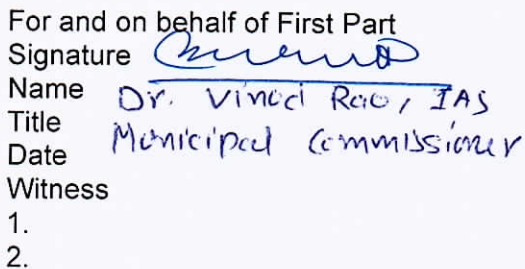 For and on behalf of First Part
Signature
Name Dr. Vinod Rao, IAS
Title Municipal Commissioner
Date
Witness
1.
2.